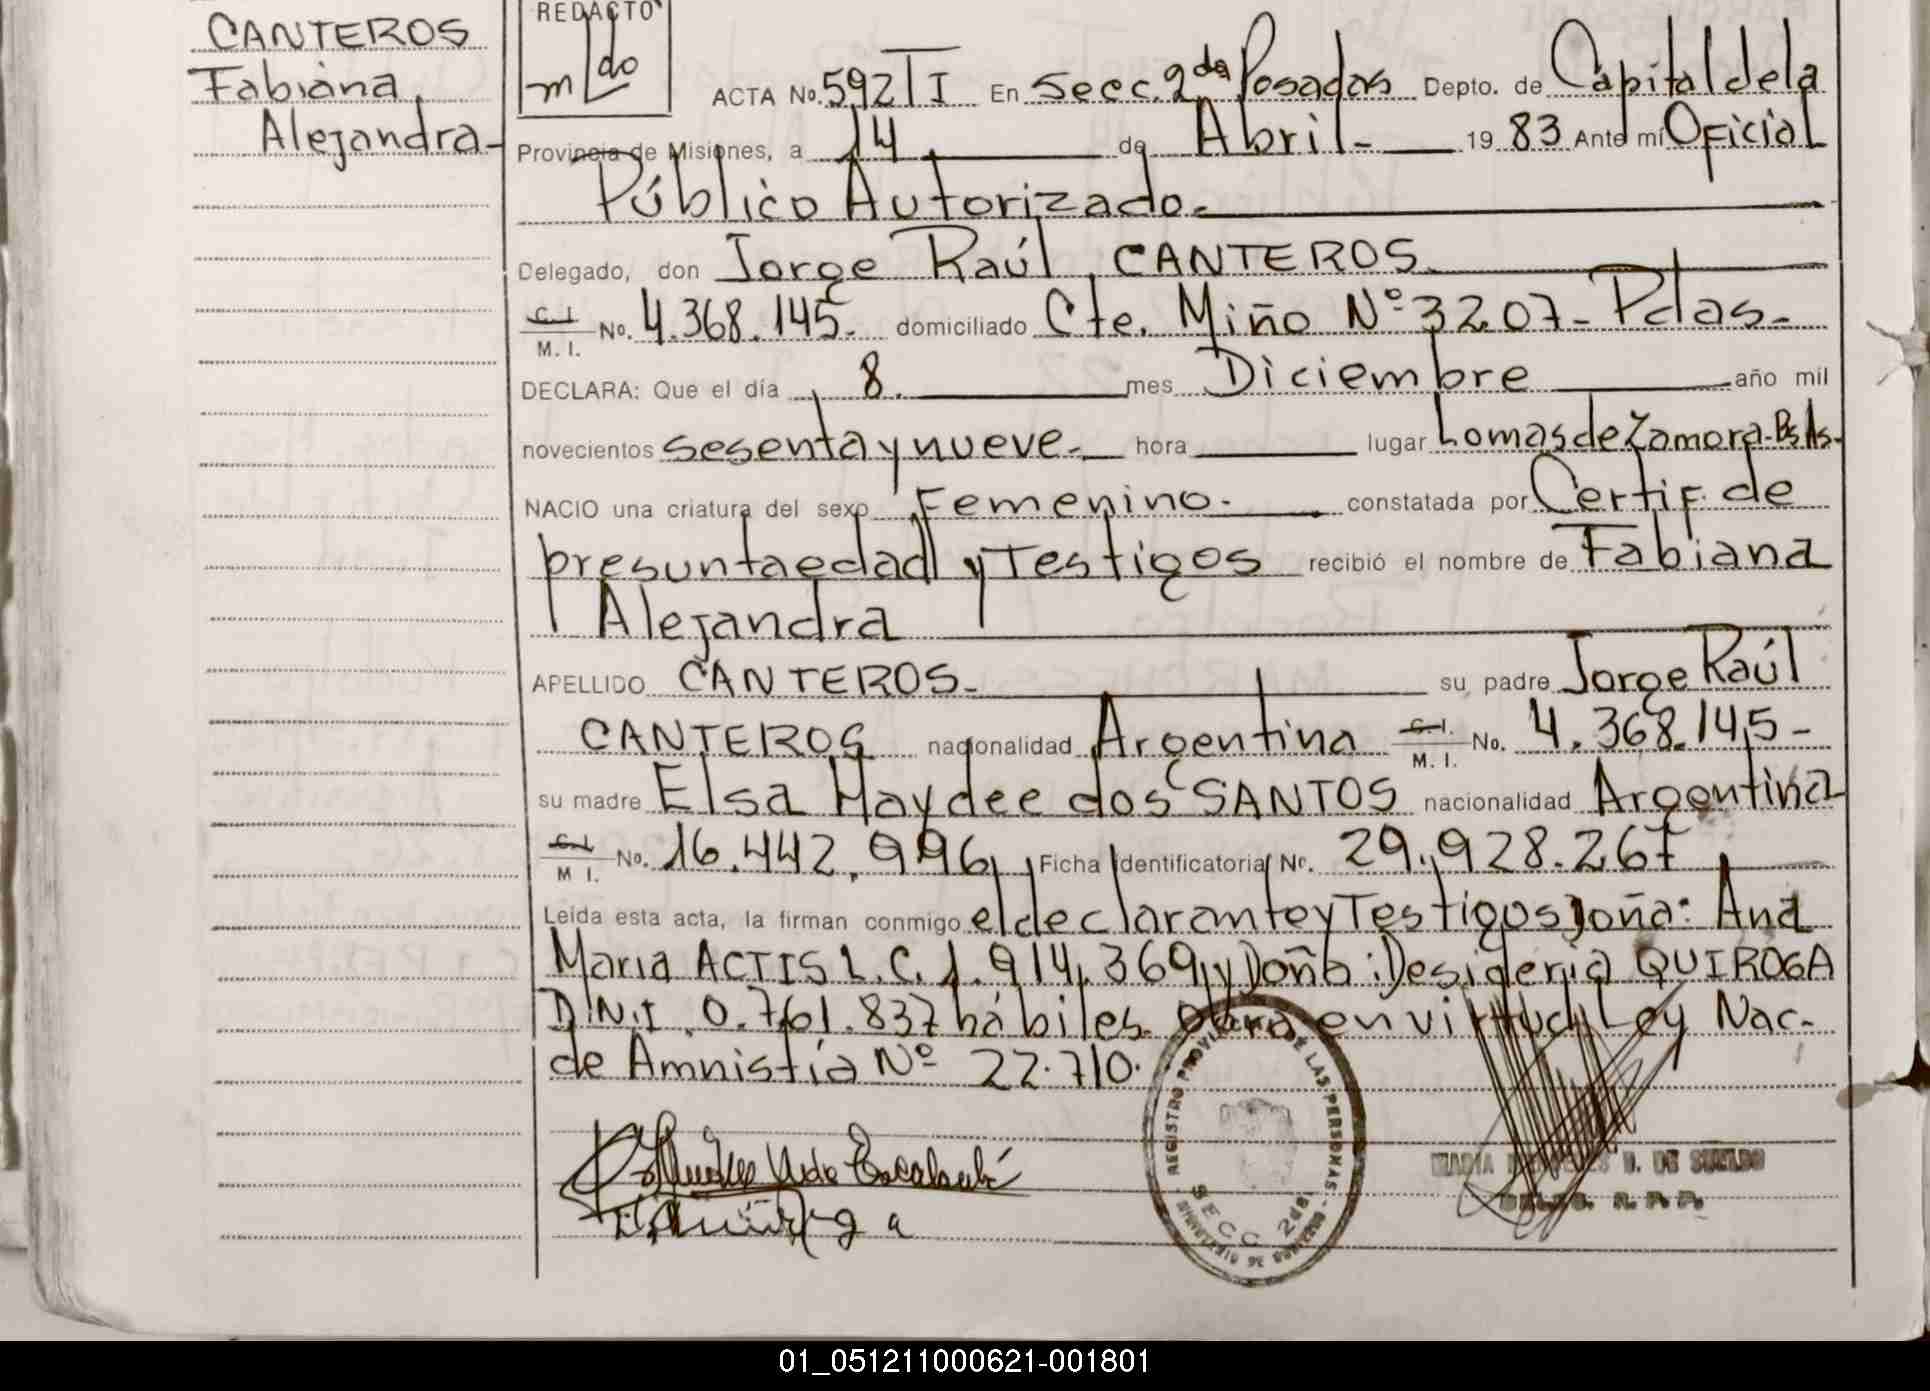 CANTEROS
Fabiana
Alejandra-
REDACTO
ACTA No. 592 T I En Secc. 2da Posadas Depto. de Capital de la
Provincia de Misiones, a 14 de Abril- 19 83 Ante mí Oficial
Público Autorizado.
Delegado, don Jorge Raúl CANTEROS
C. I.
M. I. No. 4.368.145. domiciliado Cte. Miño Nº 3207- Pdas-
DECLARA: Que el día 8. mes Diciembre año mil
novecientos sesenta y nueve- hora lugar Lomas de Zamora-Bs As-
NACIO una criatura del sexo Femenino- constatada por Certif. de
presunta edad y Testigos recibió el nombre de Fabiana
Alejandra
APELLIDO CANTEROS- su padre Jorge Raúl
CANTEROS nacionalidad Argentina C. I.
M. I. No. 4.368.145-
su madre Elsa Haydee dos SANTOS nacionalidad Argentina
C. I.
M I. No. 16.442.996 Ficha Identificatoria Nº. 29.928.267
Leída esta acta, la firman conmigo el declarante y Testigos Doña: Ana
Maria ACTIS L.C. 1.914.369 y Doña: Desideria QUIROGA
D.N.I. 0.761.837 hábiles. en virtud Ley Nac-
de Amnistía Nº 22.710.
REGISTRO PROVINCIAL DE LAS PERSONAS
SECC 2da
MARIA D. DE SUELDO
DELEG. R. P. P.
01_051211000621-001801